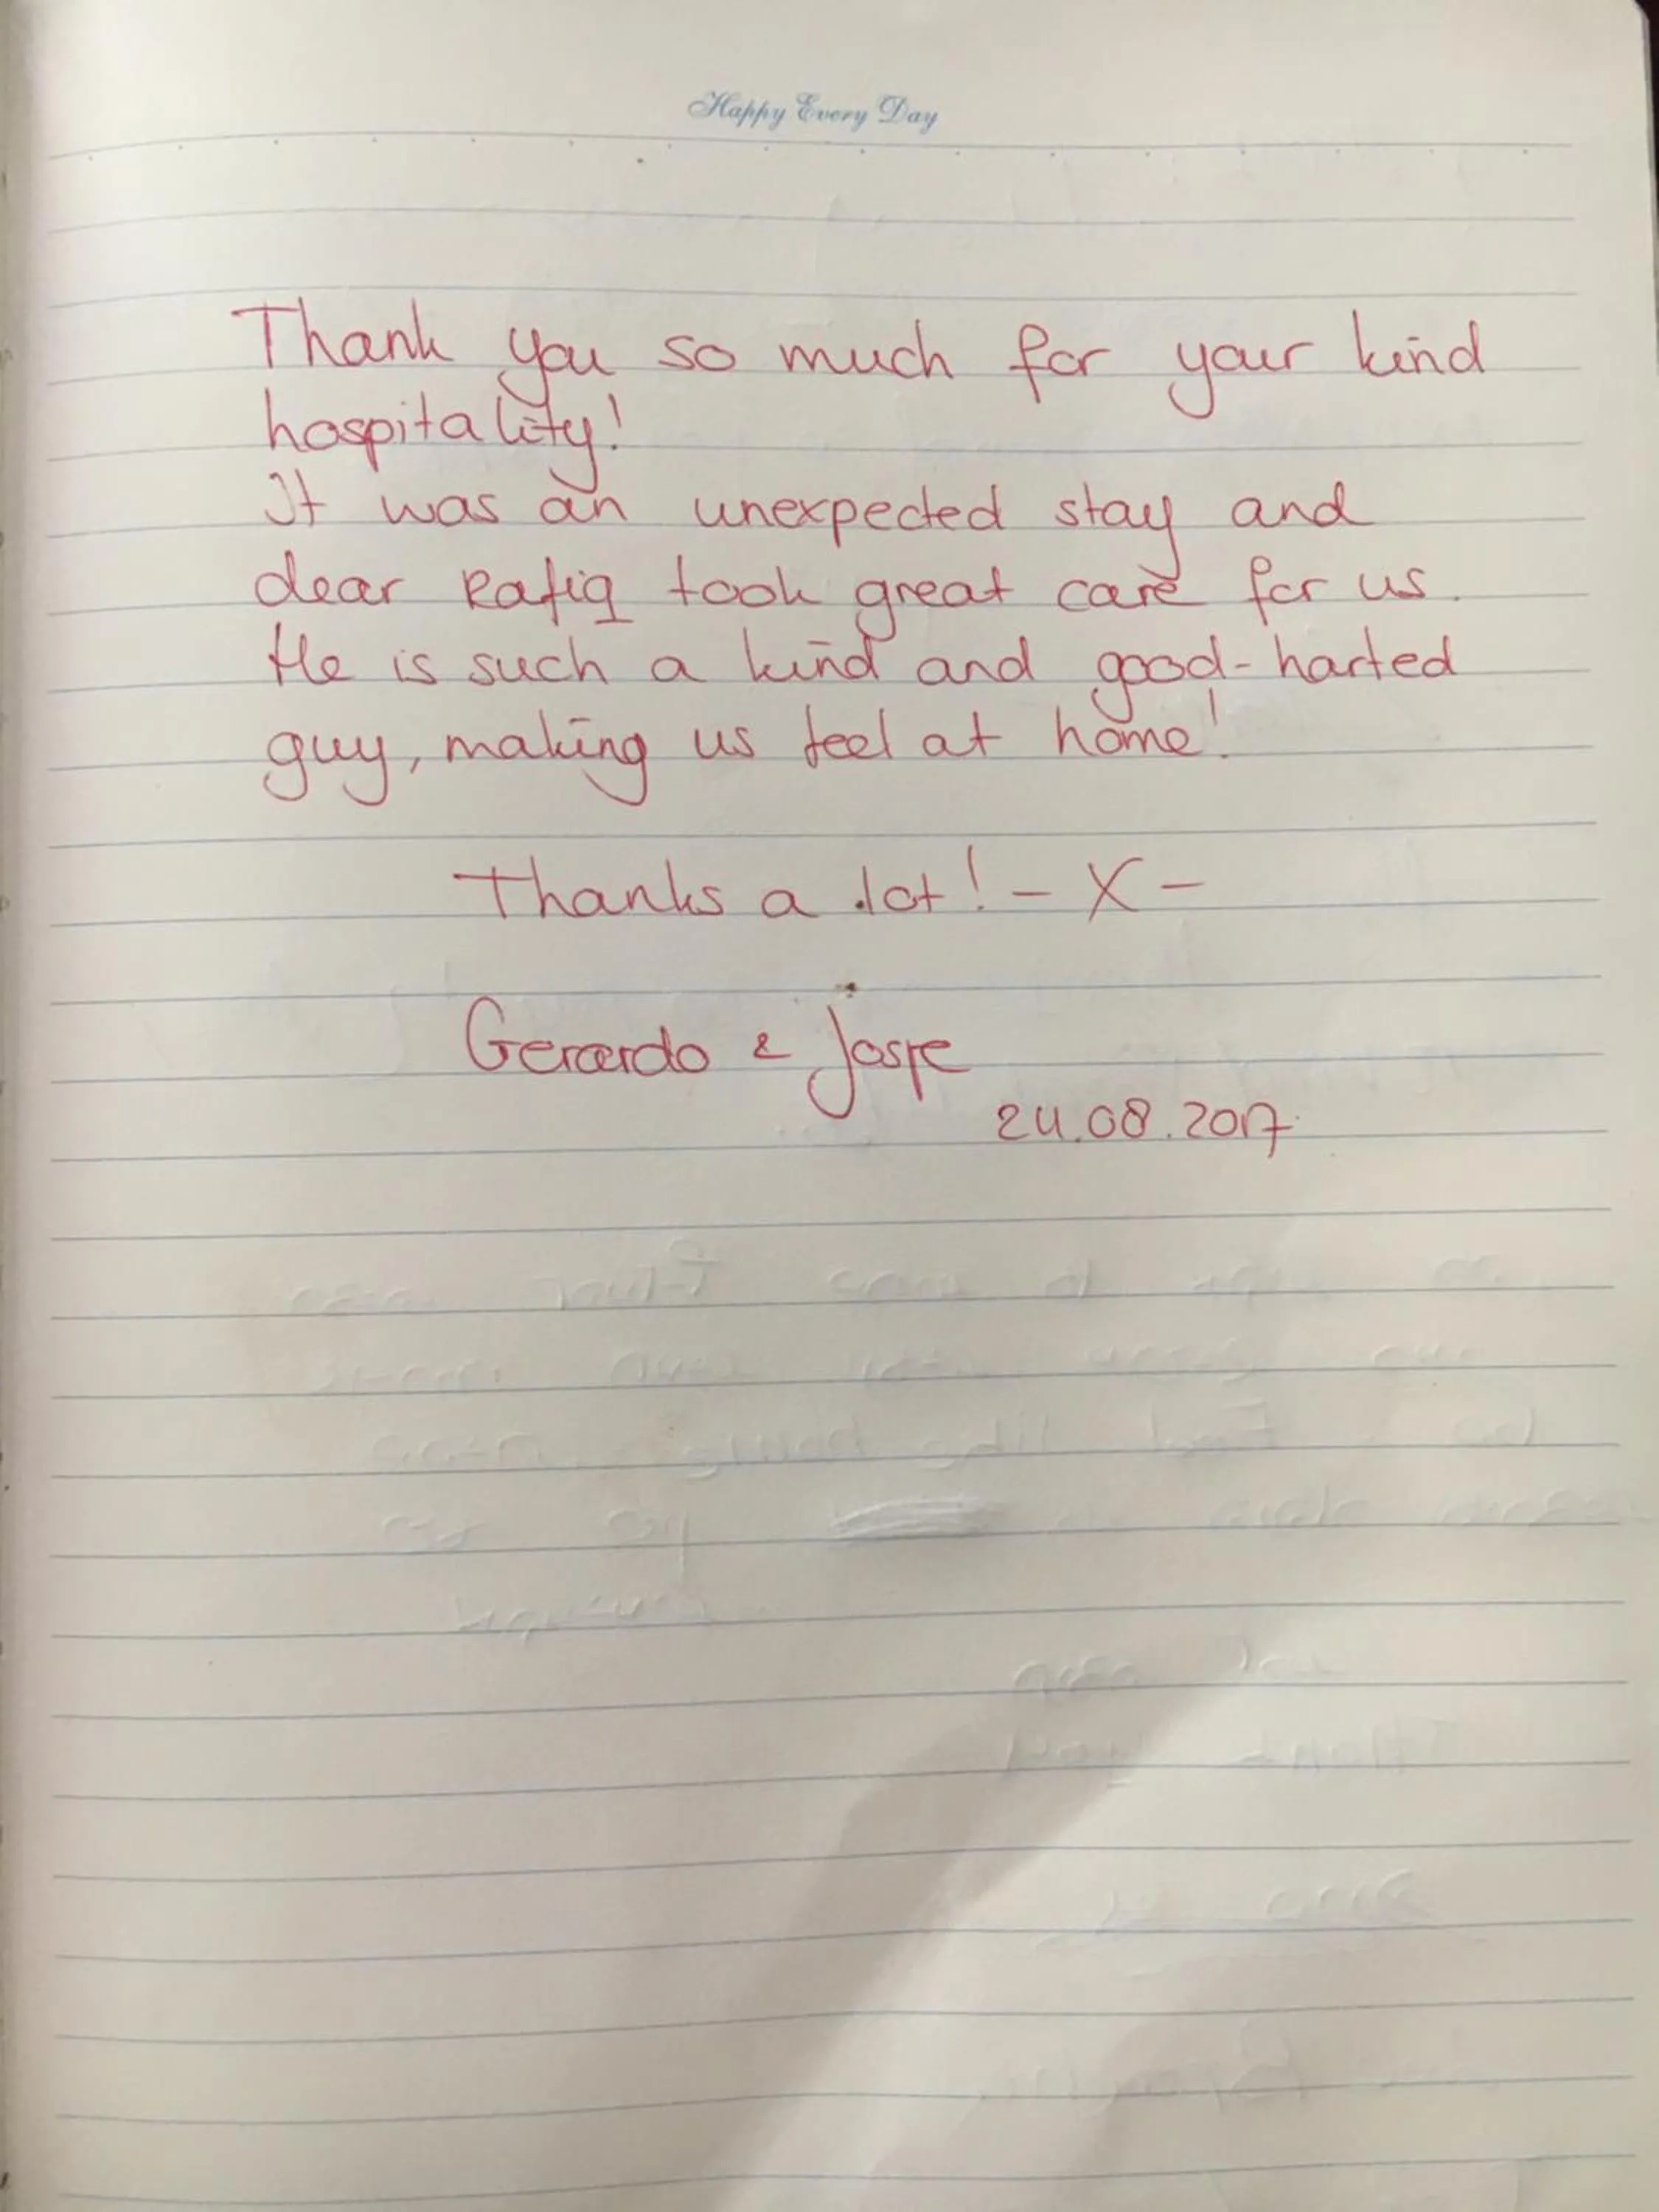 Happy Every Day
Thank you so much for your kind
hospitality!
It was an unexpected stay and
dear Rafiq took great care for us.
He is such a kind and good-harted
guy, making us feel at home!
Thanks a lot! - X -
Gerardo &
24.08.2017